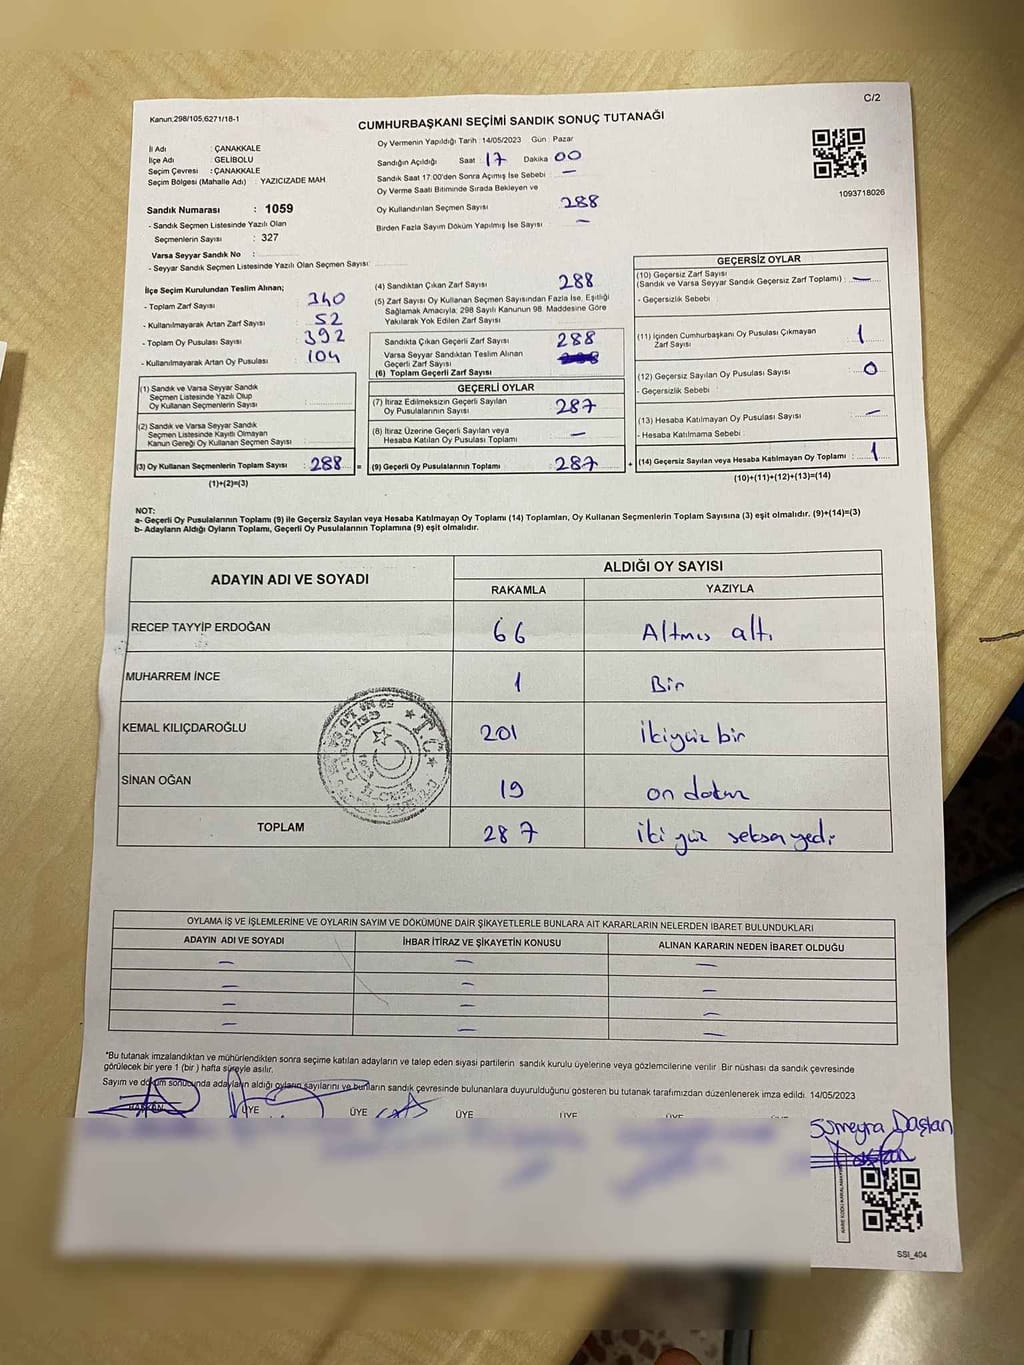 C/2
Kanun:298/105,6271/18-1
CUMHURBAŞKANI SEÇİMİ SANDIK SONUÇ TUTANAĞI
İl Adı : ÇANAKKALE
İlçe Adı : GELİBOLU
Seçim Çevresi : ÇANAKKALE
Seçim Bölgesi (Mahalle Adı) : YAZICIZADE MAH.
Sandık Numarası : 1059
- Sandık Seçmen Listesinde Yazılı Olan
Seçmenlerin Sayısı : 327
Varsa Seyyar Sandık No :
- Seyyar Sandık Seçmen Listesinde Yazılı Olan Seçmen Sayısı:
Oy Vermenin Yapıldığı Tarih : 14/05/2023 Gün : Pazar
Sandığın Açıldığı Saat : 17 Dakika : 00
Sandık Saat 17:00'den Sonra Açımış İse Sebebi : —
Oy Verme Saati Bitiminde Sırada Bekleyen ve
Oy Kullandırılan Seçmen Sayısı : 288
Birden Fazla Sayım Döküm Yapılmış İse Sayısı : —
1093718026
İlçe Seçim Kurulundan Teslim Alınan;
- Toplam Zarf Sayısı : 340
- Kullanılmayarak Artan Zarf Sayısı : 52
- Toplam Oy Pusulası Sayısı : 392
- Kullanılmayarak Artan Oy Pusulası : 104
(1) Sandık ve Varsa Seyyar Sandık
Seçmen Listesinde Yazılı Olup
Oy Kullanan Seçmenlerin Sayısı :
(2) Sandık ve Varsa Seyyar Sandık
Seçmen Listesinde Kayıtlı Olmayan
Kanun Gereği Oy Kullanan Seçmen Sayısı :
(3) Oy Kullanan Seçmenlerin Toplam Sayısı : 288
(1)+(2)=(3)
(4) Sandıktan Çıkan Zarf Sayısı : 288
(5) Zarf Sayısı Oy Kullanan Seçmen Sayısından Fazla İse, Eşitliği
Sağlamak Amacıyla; 298 Sayılı Kanunun 98. Maddesine Göre
Yakılarak Yok Edilen Zarf Sayısı :
Sandıkta Çıkan Geçerli Zarf Sayısı : 288
Varsa Seyyar Sandıktan Teslim Alınan
Geçerli Zarf Sayısı :
(6) Toplam Geçerli Zarf Sayısı :
GEÇERLİ OYLAR
(7) İtiraz Edilmeksizin Geçerli Sayılan
Oy Pusulalarının Sayısı : 287
(8) İtiraz Üzerine Geçerli Sayılan veya
Hesaba Katılan Oy Pusulası Toplamı : —
(9) Geçerli Oy Pusulalarının Toplamı : 287
GEÇERSİZ OYLAR
(10) Geçersiz Zarf Sayısı
(Sandık ve Varsa Seyyar Sandık Geçersiz Zarf Toplamı) : —
- Geçersizlik Sebebi :
(11) İçinden Cumhurbaşkanı Oy Pusulası Çıkmayan
Zarf Sayısı : 1
(12) Geçersiz Sayılan Oy Pusulası Sayısı : 0
- Geçersizlik Sebebi :
(13) Hesaba Katılmayan Oy Pusulası Sayısı : —
- Hesaba Katılmama Sebebi :
(14) Geçersiz Sayılan veya Hesaba Katılmayan Oy Toplamı : 1
(10)+(11)+(12)+(13)=(14)
NOT:
a- Geçerli Oy Pusulalarının Toplamı (9) ile Geçersiz Sayılan veya Hesaba Katılmayan Oy Toplamı (14) Toplamları, Oy Kullanan Seçmenlerin Toplam Sayısına (3) eşit olmalıdır. (9)+(14)=(3)
b- Adayların Aldığı Oyların Toplamı, Geçerli Oy Pusulalarının Toplamına (9) eşit olmalıdır.
ADAYIN ADI VE SOYADI
ALDIĞI OY SAYISI
RAKAMLA YAZIYLA
RECEP TAYYİP ERDOĞAN 66 Altmış altı
MUHARREM İNCE 1 Bir
KEMAL KILIÇDAROĞLU 201 İkiyüz bir
SİNAN OĞAN 19 on dokuz
TOPLAM 287 iki yüz seksa yedi
OYLAMA İŞ VE İŞLEMLERİNE VE OYLARIN SAYIM VE DÖKÜMÜNE DAİR ŞİKAYETLERLE BUNLARA AİT KARARLARIN NELERDEN İBARET BULUNDUKLARI
ADAYIN ADI VE SOYADI İHBAR İTİRAZ VE ŞİKAYETİN KONUSU ALINAN KARARIN NEDEN İBARET OLDUĞU
— — —
— — —
— — —
— — —
*Bu tutanak imzalandıktan ve mühürlendikten sonra seçime katılan adayların ve talep eden siyasi partilerin sandık kurulu üyelerine veya gözlemcilerine verilir. Bir nüshası da sandık çevresinde
görülecek bir yere 1 (bir) hafta süreyle asılır.
Sayım ve döküm sonucunda adayların aldığı oyların sayılarını ve bunların sandık çevresinde bulunanlara duyurulduğunu gösteren bu tutanak tarafımızdan düzenlenerek imza edildi. 14/05/2023
BAŞKAN ÜYE ÜYE ÜYE ÜYE ÜYE
Sümeyra Daştan
SSI_404